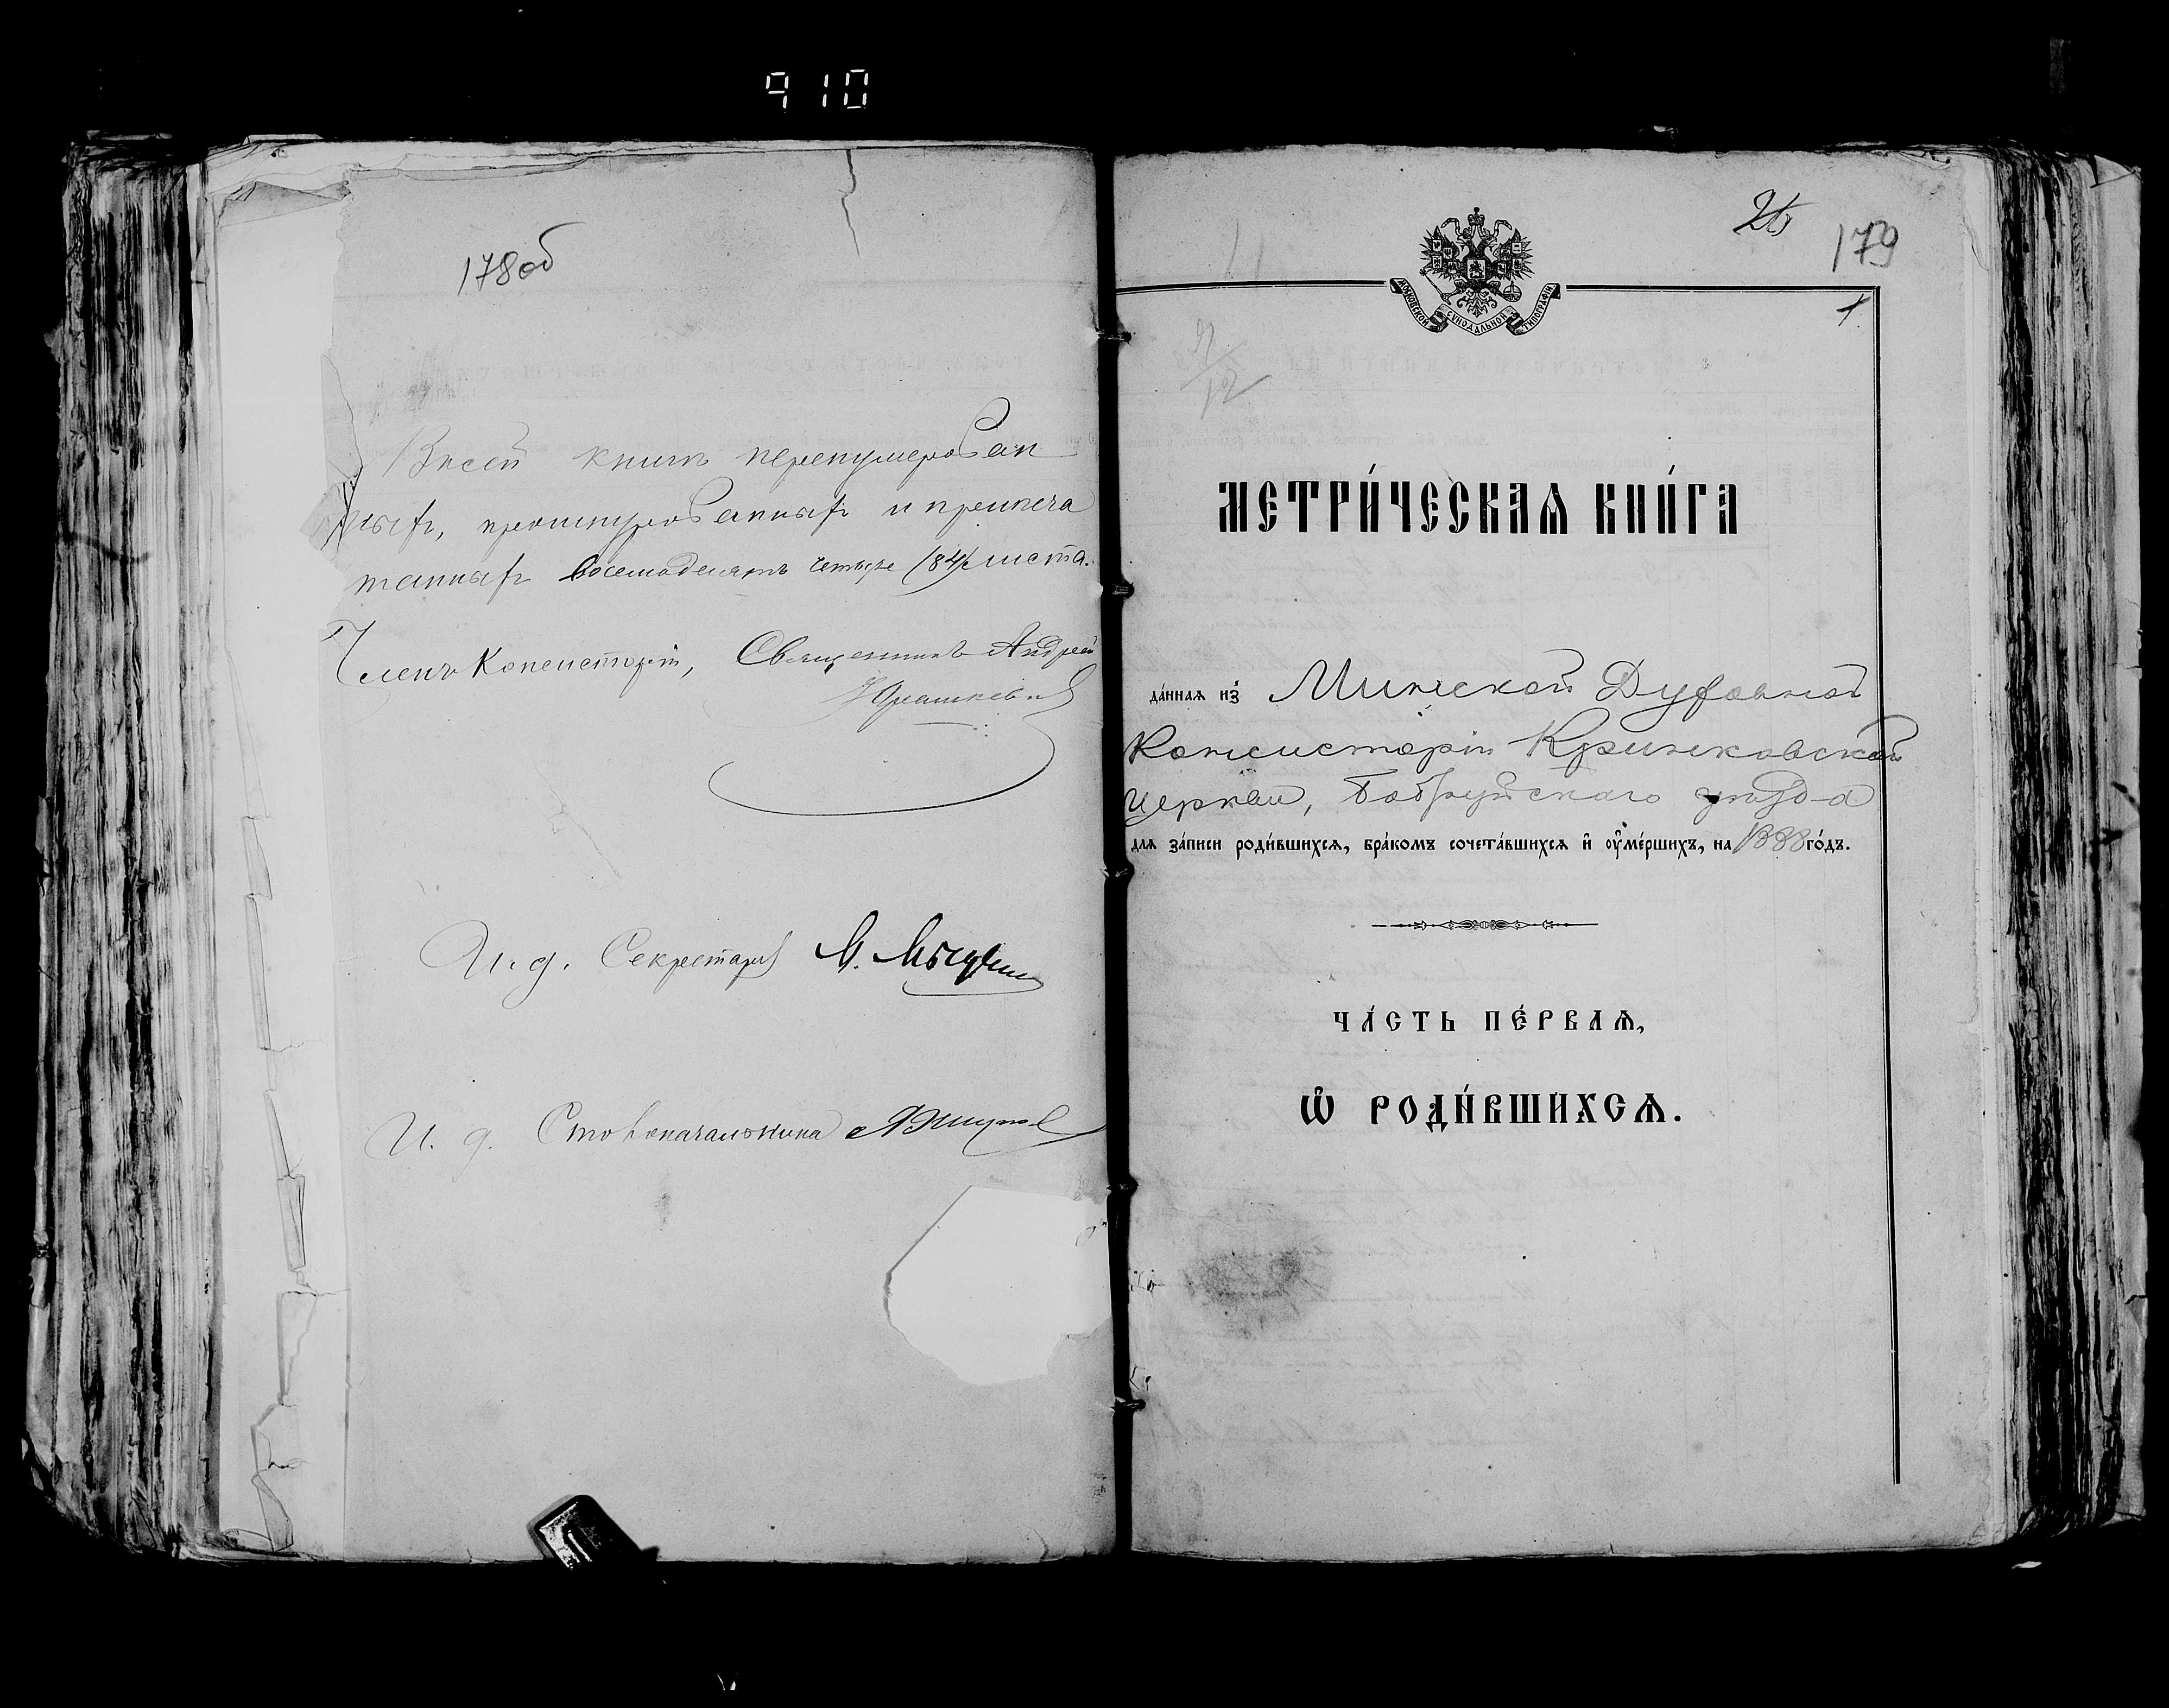 910
178об
В сей книгѣ перенумерован
ныхъ, прошнурованныхъ и припеча
танныхъ восемьдесятъ четыре (84) листа.
Членъ Консисторіи, Священникъ Андрей
Юрашкевичъ
И. д. Секретаря
И. д. Столоначальника
26
179
1
МОСКОВСКОЙ СѴНОДАЛЬНОЙ ТИПОГРАФІИ
МЕТРИ́ЧЕСКАѦ КНИ́ГА
да́ннаѧ из̾ Минской Духовной
Консисторіи Кринковской
церкви, Бобруйскаго уѣзда
длѧ за́писи роди́вшихсѧ, бра́комъ сочета́вшихсѧ и҆ ᲂу҆ме́ршихъ, на 1888 го́дъ.
ЧА́СТЬ ПЕ́РВАѦ,
Ѽ РОДИ́ВШИХСѦ.